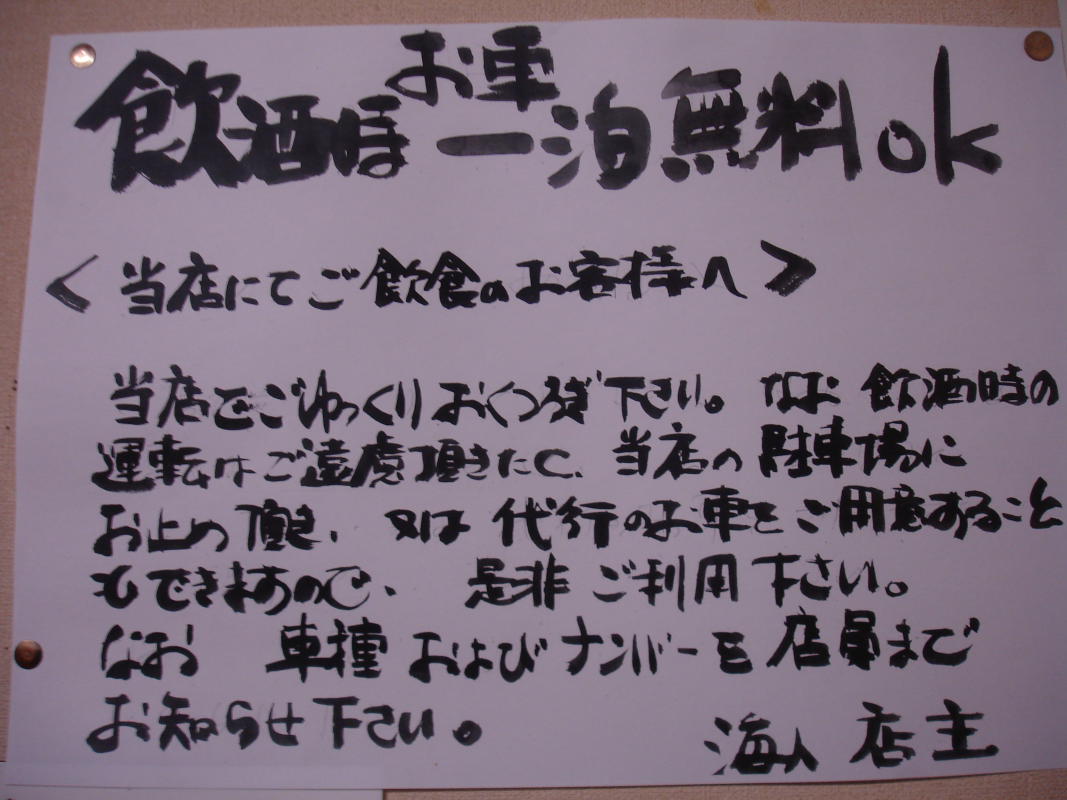 飲酒時お車一泊無料ok
<当店にてご飲食のお客様へ>
当店でごゆっくりおくつろぎ下さい。なお 飲酒時の
運転はご遠慮頂きたく、当店の駐車場に
お止め頂き、又は代行のお車をご用意すること
もできますので、是非ご利用下さい。
なお 車種およびナンバーを店員まで
お知らせ下さい。
海人 店主